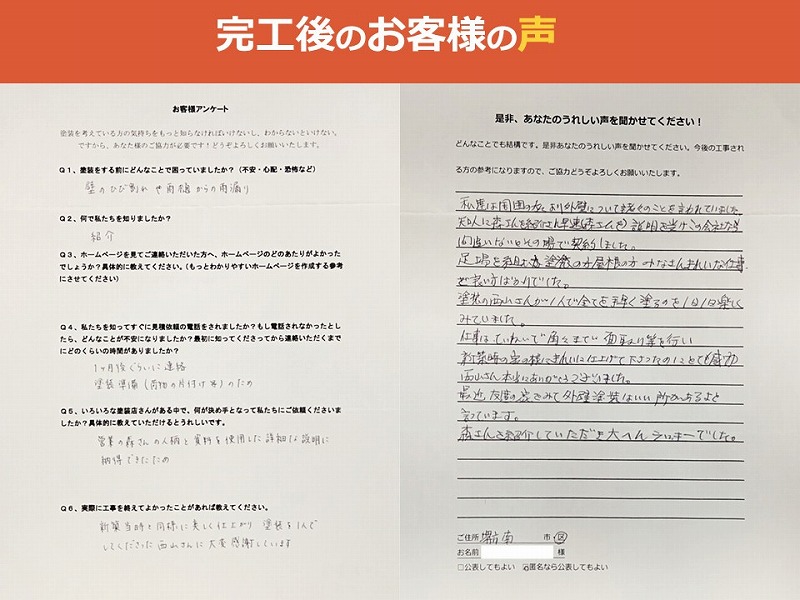 完工後のお客様の声
お客様アンケート
塗装を考えている方の気持ちをもっと知らなければいけないし、わからないといけない。
ですから、あなた様のご協力が必要です！どうぞよろしくお願いいたします。
Q1、塗装をする前にどんなことで困っていましたか？（不安・心配・恐怖など）
壁のひび割れや雨樋からの雨漏り
Q2、何で私たちを知りましたか？
紹介
Q3、ホームページを見てご連絡いただいた方へ、ホームページのどのあたりがよかった
でしょうか？具体的に教えてください。（もっとわかりやすいホームページを作成する参考
にさせてください）
Q4、私たちを知ってすぐに見積依頼の電話をされましたか？もし電話されなかったとし
たら、どんなことが不安になりましたか？最初に知ってくださってから連絡いただくまで
にどのくらいの時間がありましたか？
1ヶ月後ぐらいに連絡
塗装準備（荷物の片付け等）のため
Q5、いろいろな塗装店さんがある中で、何が決め手となって私たちにご依頼くださいま
したか？具体的に教えていただけるとうれしいです。
営業の森さんの人柄と資料を使用した詳細な説明に
納得できたため
Q6、実際に工事を終えてよかったことがあれば教えてください。
新築当時と同様に美しく仕上がり 塗装を1人で
してくださった西山さんに大変感謝しています
是非、あなたのうれしい声を聞かせてください！
どんなことでも結構です。是非あなたのうれしい声を聞かせてください。今後の工事され
る方の参考になりますので、ご協力どうぞよろしくお願いいたします。
私達は周囲の方より外壁について色々のことを言われていました
知人に森さんを紹介され早速（森さんを）説明を受けこの会社なら
間違いないとその場で契約しました。
足場を組む 塗装の方 屋根の方 みなさんきれいな仕事
で良い方ばかりでした。
塗装の西山さんが1人で全てを手早く塗るのを1日1日楽しく
みていました。
仕事はていねいで角々まで 面取り等を行い
新築時の家の様にきれいに仕上げて下さったのにとても感動
西山さん本当にありがとうございました。
最近、友達の家をみて外壁塗装はいい所があるよと
言っています。
森さんを紹介していただき大へんラッキーでした。
ご住所 堺市南 市 区
お名前 様
□公表してもよい ☑匿名なら公表してもよい